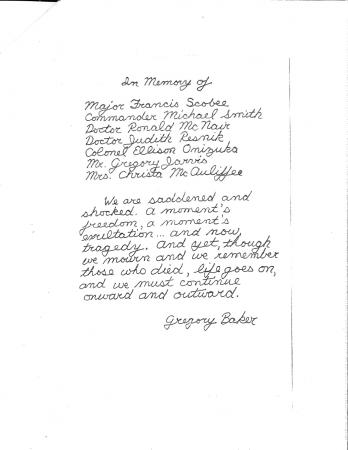 In Memory of
Major Francis Scobee
Commander Michael Smith
Doctor Ronald McNair
Doctor Judith Resnik
Colonel Ellison Onizuka
Mr. Gregory Jarvis
Mrs. Christa McAuliffee
We are saddened and
shocked. A moment's
freedom, a moment's
exultation... and now,
tragedy. And yet, though
we mourn and we remember
those who died, life goes on,
and we must continue
onward and outward.
Gregory Baker